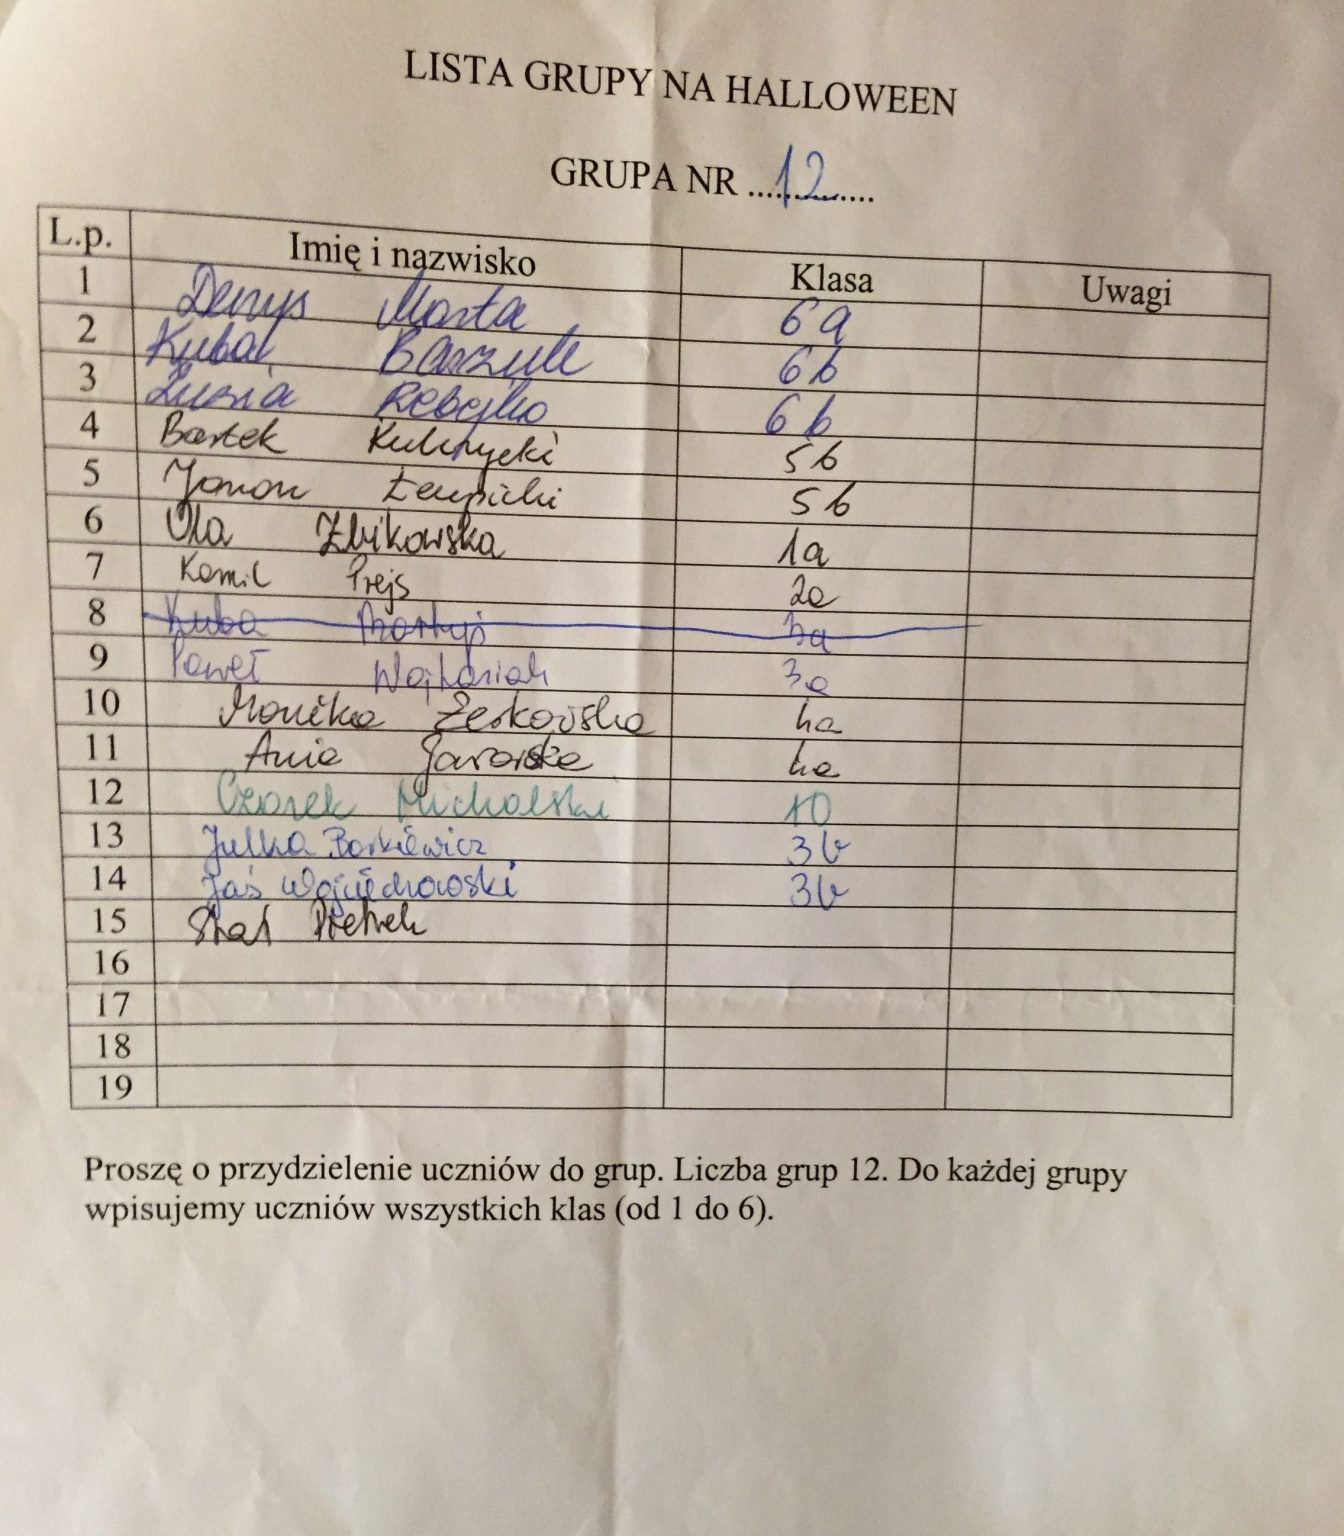 LISTA GRUPY NA HALLOWEEN
GRUPA NR ....12....
L.p. Imię i nazwisko Klasa Uwagi
1 Denys Marta 6a
2 Kuba 6b
3 Zuzia Rebejko 6b
4 Bartek Kulczycki 5b
5 5b
6 Ola Żbikowska 1a
7 Kamil Prejs 2a
8 Kuba 3a
9 Paweł 3a
10 Monika Żerkowska 4a
11 Ania 4a
12 Czarek Michalski
13 Julka Borkiewicz 3b
14 Jaś Wojciechowski 3b
15 Staś Pietrek
16
17
18
19
Proszę o przydzielenie uczniów do grup. Liczba grup 12. Do każdej grupy
wpisujemy uczniów wszystkich klas (od 1 do 6).